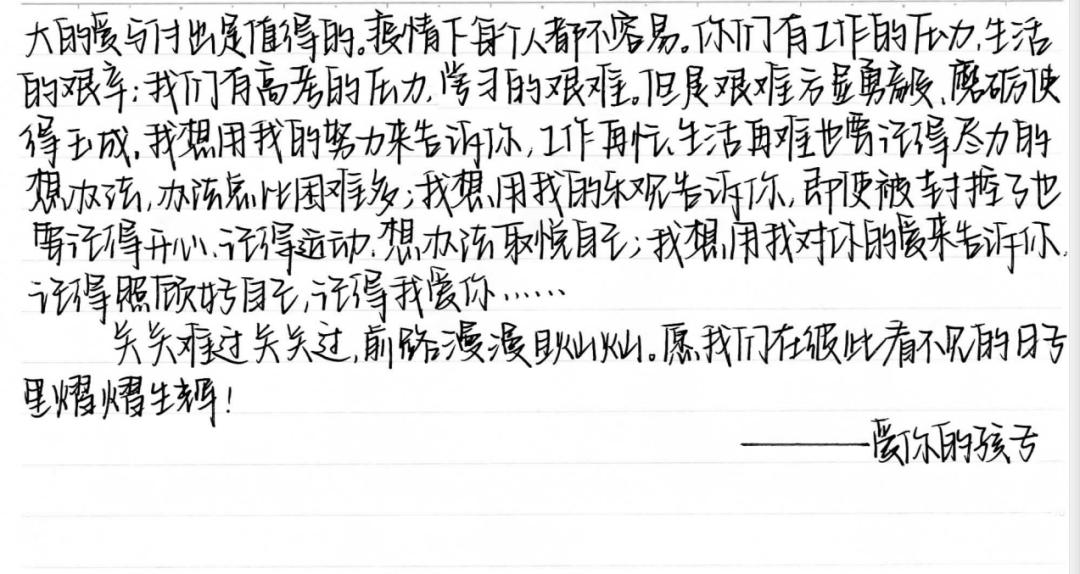 大的爱与付出是值得的。疫情下每个人都不容易。你们有工作的压力,生活
的艰辛;我们有高考的压力,学习的艰难。但是艰难方显勇毅、磨砺使
得玉成,我想用我的努力来告诉你,工作再忙、生活再难也要记得尽力的
想办法,办法总比困难多;我想用我的乐观告诉你,即使被封控了也
要记得开心、记得运动、想办法取悦自己;我想用我对你的爱来告诉你,
记得照顾好自己,记得我爱你……
关关难过关关过,前路漫漫且灿灿。愿我们在彼此看不见的日子
里熠熠生辉!
——爱你的孩子